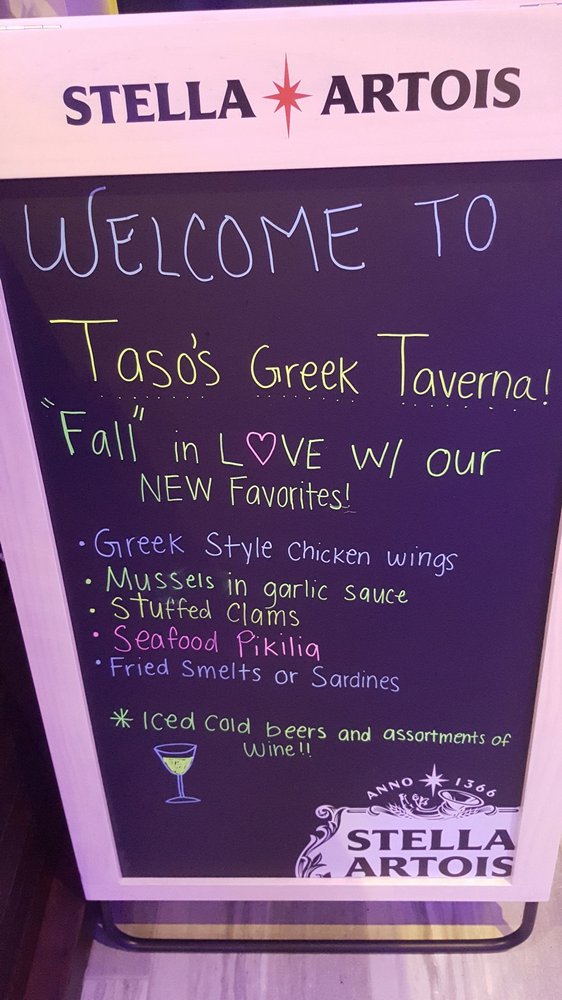 STELLA ARTOIS
WELCOME TO
Taso's Greek Taverna!
"Fall" in L♡VE w/ our
NEW Favorites!
• Greek Style Chicken wings
• Mussels in garlic sauce
• Stuffed Clams
• Seafood Pikilia
• Fried Smelts or Sardines
* Iced Cold beers and assortments of
Wine!!
ANNO 1366
STELLA
ARTOIS